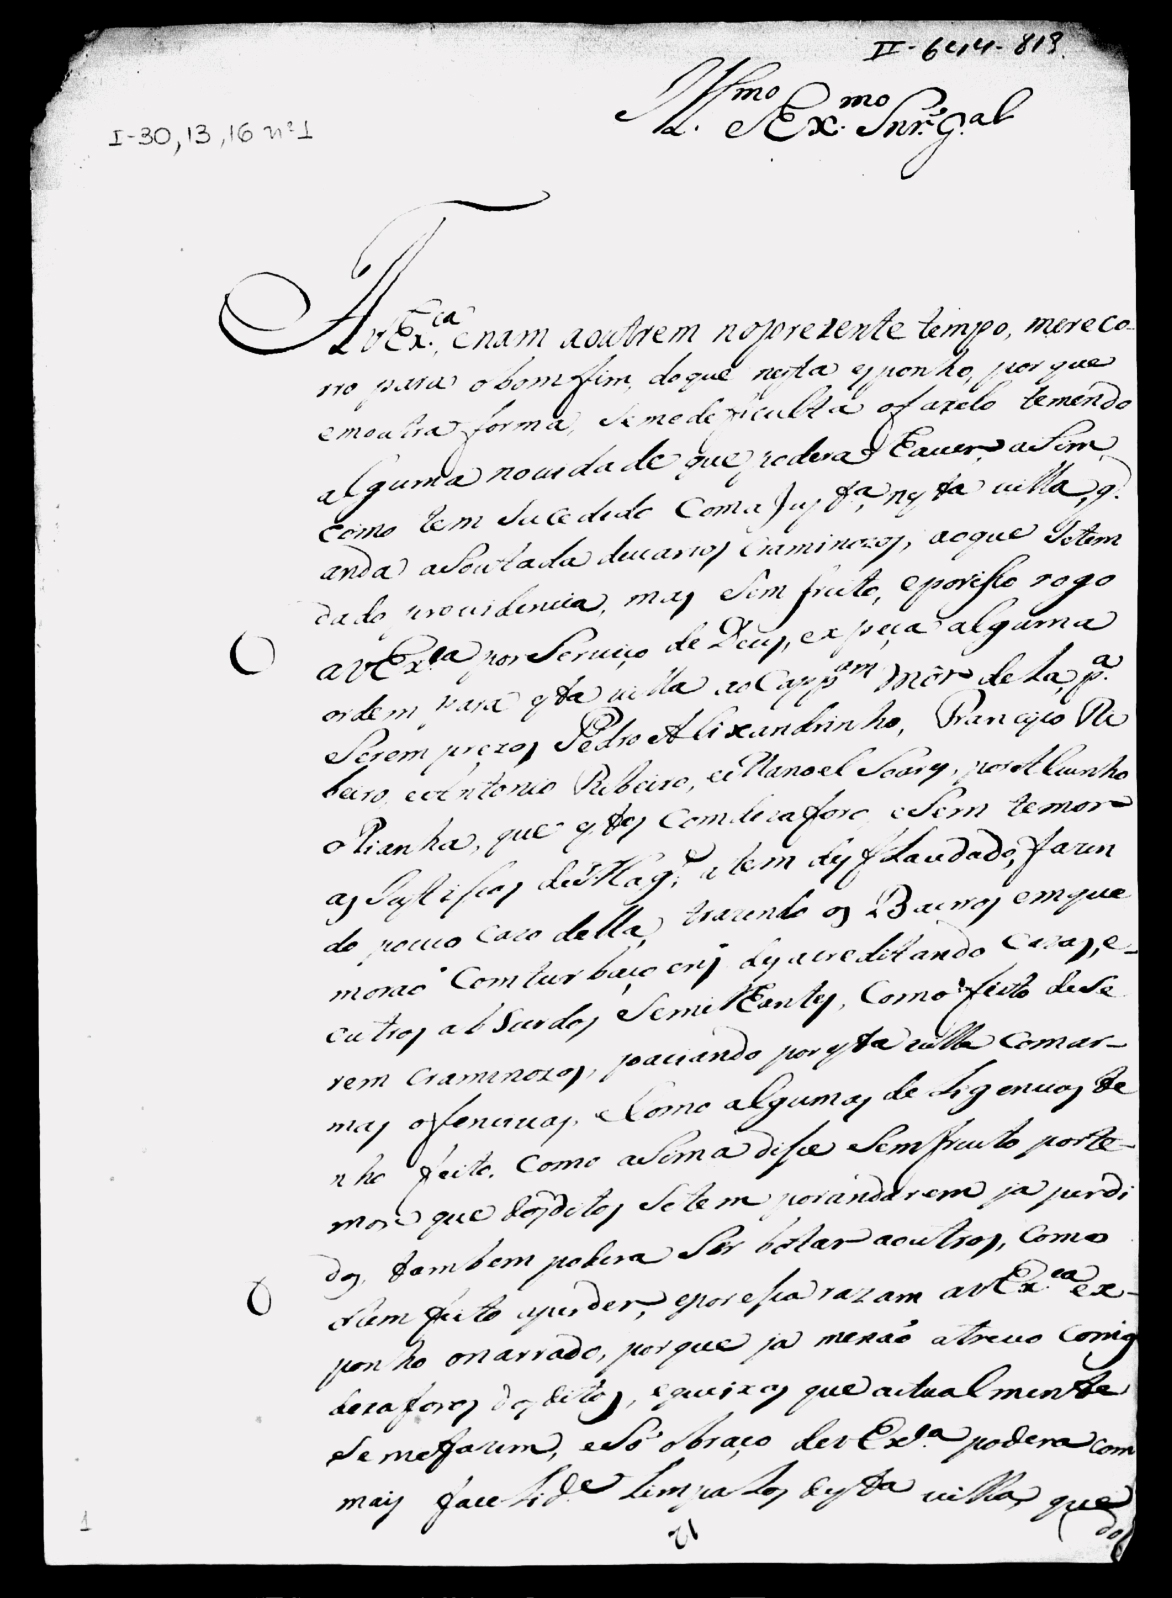 II-6414-813.
Il.mo e Ex.mo Snr. G.al
I-30,13,16 nº1
A V Ex.ca, e nam a outrem no prezente tempo, me reco-
rro para o bom fim, do que nesta exponho, porque
em outra forma, se me deficulta o fazelo temendo
alguma novidade que podera Eaver, asim
como tem sucedido com a Just.a, nesta villa, q.
anda asoutada de varios Craminozos, ao que se tem
dado providencia, mas sem fruito, e por isso rogo
a V Ex.la por Serviço de Deus, expeça alguma
ordem para esta villa ao Capp.am Mór de La, p.a
Serem prezos Pedro Alixandrinho, Francisco Ri
beiro, e Antonio Ribeiro, e Manoel Soares, por Alcunho
o Pianha, que estes com dezaforo, e sem temor
as Justissas de S. Mag.e a tem desfLaudado, fazen
do pouco cazo della, trazendo os Bairros em que
morão Comturbaçoens desacreditando Cazas, e-
outros absurdos SemilEantes, Como feito de Se
rem Craminozos, paciando por esta villa Com ar-
mas ofencivas, e Como algumas deLigencias te
nho feito, Como asima disse Sem fruito por te-
mor que dos ditos Se tem por andarem ja perdi
dos, tambem podera Ser botar a outros, Como
tem feito a perder, e por essa razam a V Ex.ca ex-
ponho o narrado, porque ja me não atrevo Com os
dezaforos dos ditos, e queixas que actualmente
Se me fazem, e Só o braço de V Ex.la podera com
mais faceLid.e Limpalos desta villa, que
dos
1